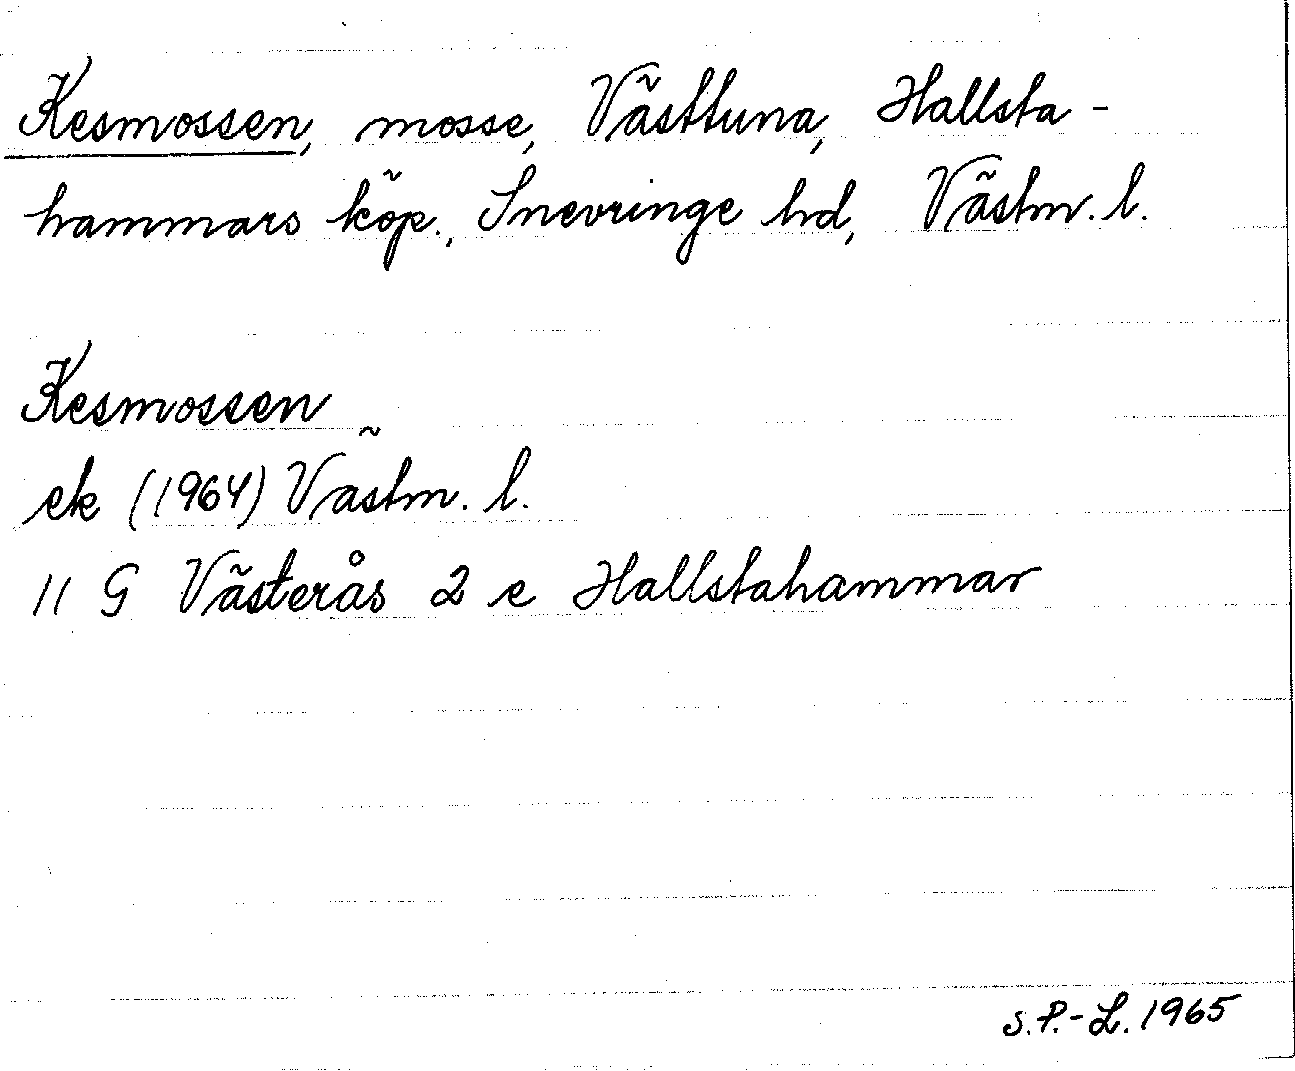 Kesmossen, mosse, Västtuna, Hallsta-
hammars köp., Snevringe hd, Västm. l.
Kesmossen
ek (1964) Västm. l.
11 G Västerås 2 e Hallstahammar
S.P.-L. 1965